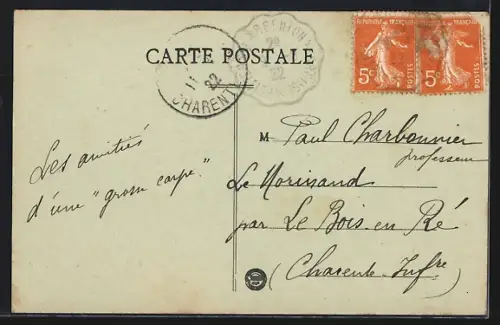 CARTE POSTALE
11
22
CHARENT
22
RÉPUBLIQUE FRANÇAISE
5c POSTES
5c POSTES
Les amitiés
d'une "grosse carpe."
M Paul Charbonnier
professeur
Le Morinand
par Le Bois en Ré
(Charente Infre)